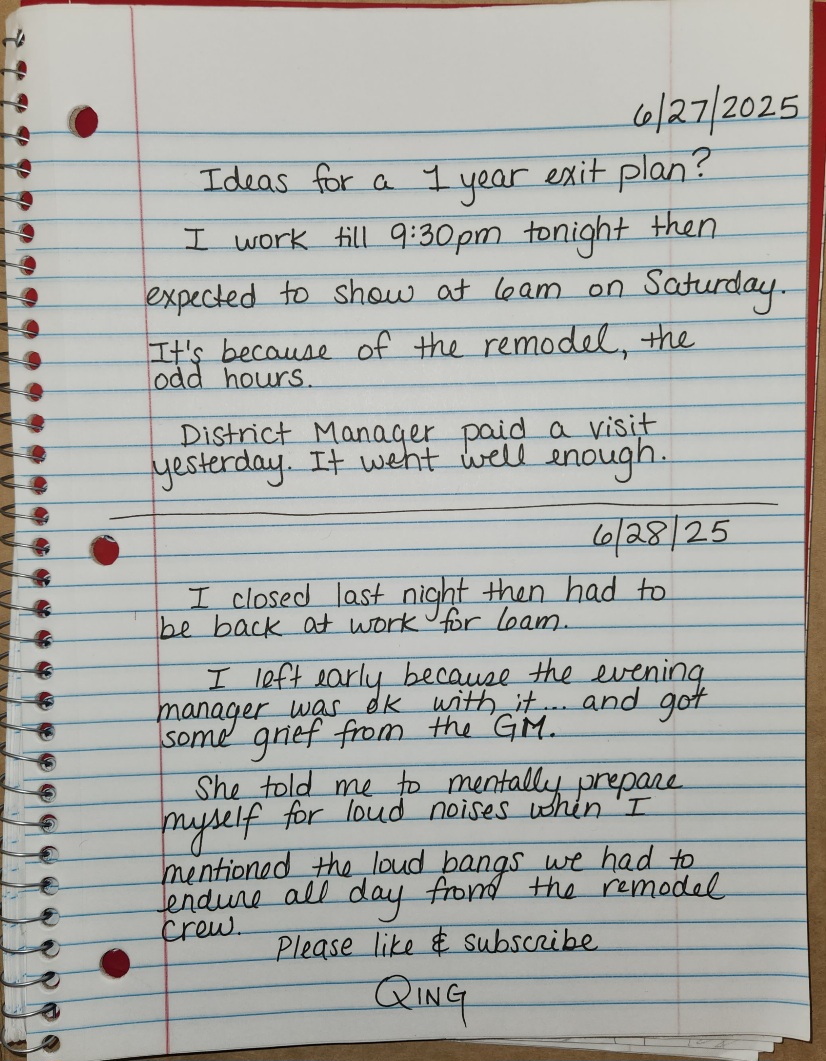 6/27/2025
Ideas for a 1 year exit plan?
I work till 9:30pm tonight then
expected to show at 6am on Saturday.
It's because of the remodel, the
odd hours.
District Manager paid a visit
yesterday. It went well enough.
6/28/25
I closed last night then had to
be back at work for 6am.
I left early because the evening
manager was ok with it... and got
some grief from the GM.
She told me to mentally prepare
myself for loud noises when I
mentioned the loud bangs we had to
endure all day from the remodel
crew.
Please like & subscribe
QING